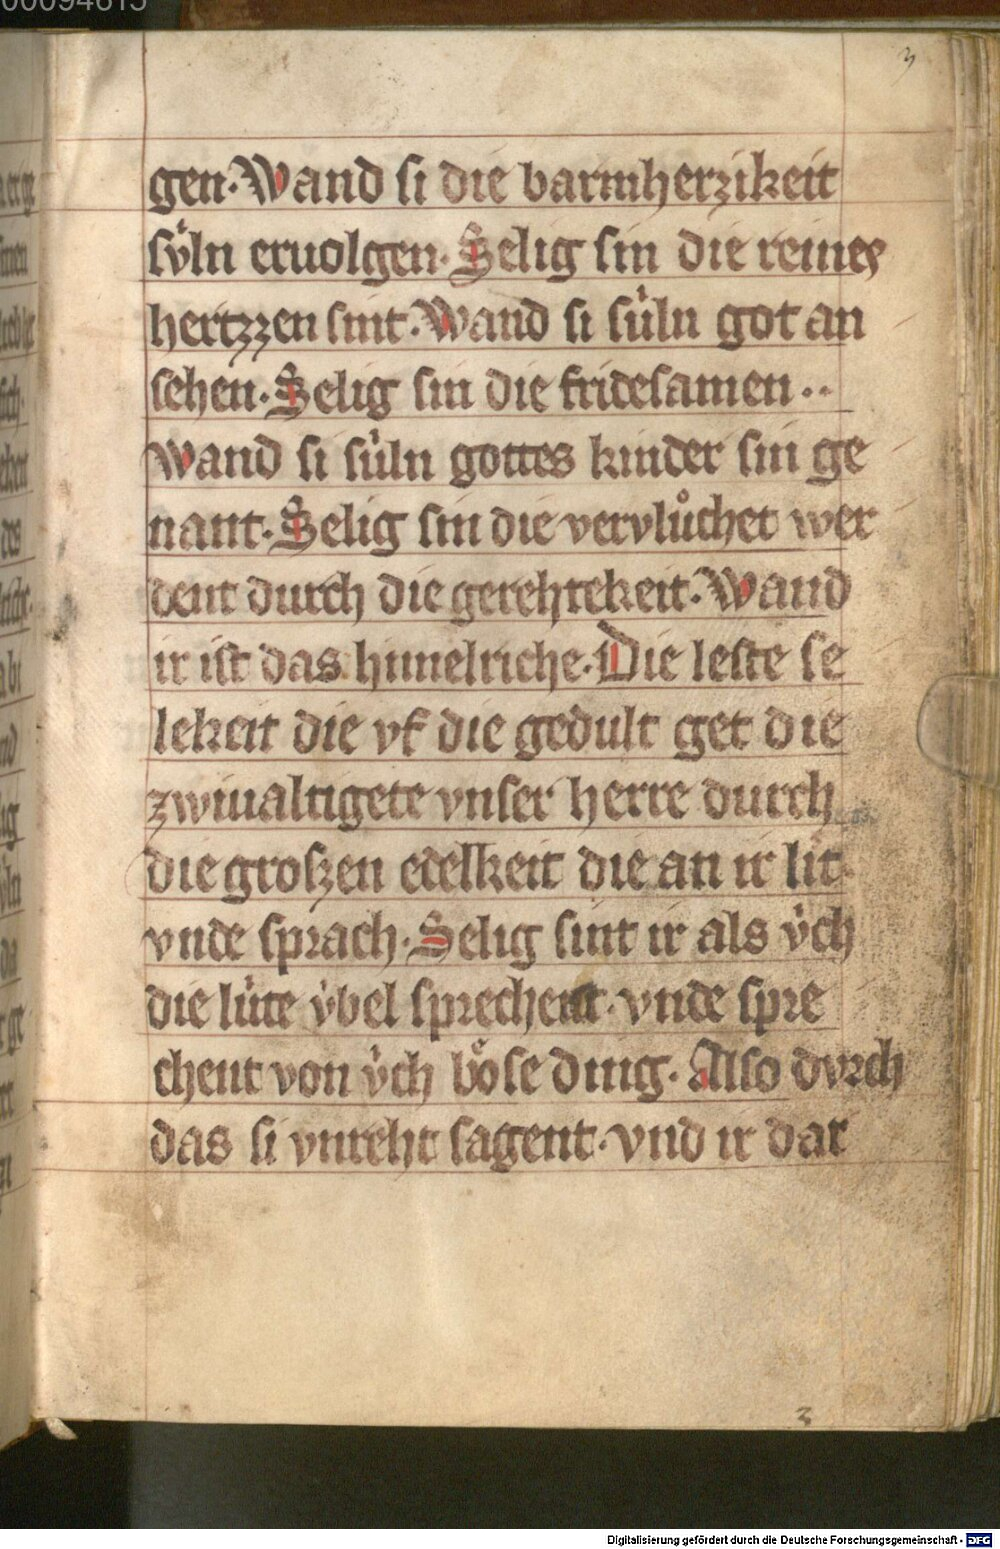 00094615
3
gen·Wand si die barmherzikeit
sv̇ln eruolgen·Selig sin die reines
hertzzen sint·Wand si su̇ln got an
sehen·Selig sin die fridesamen··
wand si su̇ln gottes kinder sin ge
nant·Selig sin die vervlůchet wer
dent durch die gerehtekeit·Wand
ir ist das himelriche·Die leste se
lekeit die vf die gedult get die
zwiualtigete vnser herre durch
die groszen edelkeit die an ir lit·
vnde sprach·Selig sint ir als v̇ch
die lu̇te v̇bel sprechent·vnde spre
chent von v̇ch bo̊se ding·Also dvrch
das si vnreht sagent·vnd ir dar
3
Digitalisierung gefördert durch die Deutsche Forschungsgemeinschaft - DFG